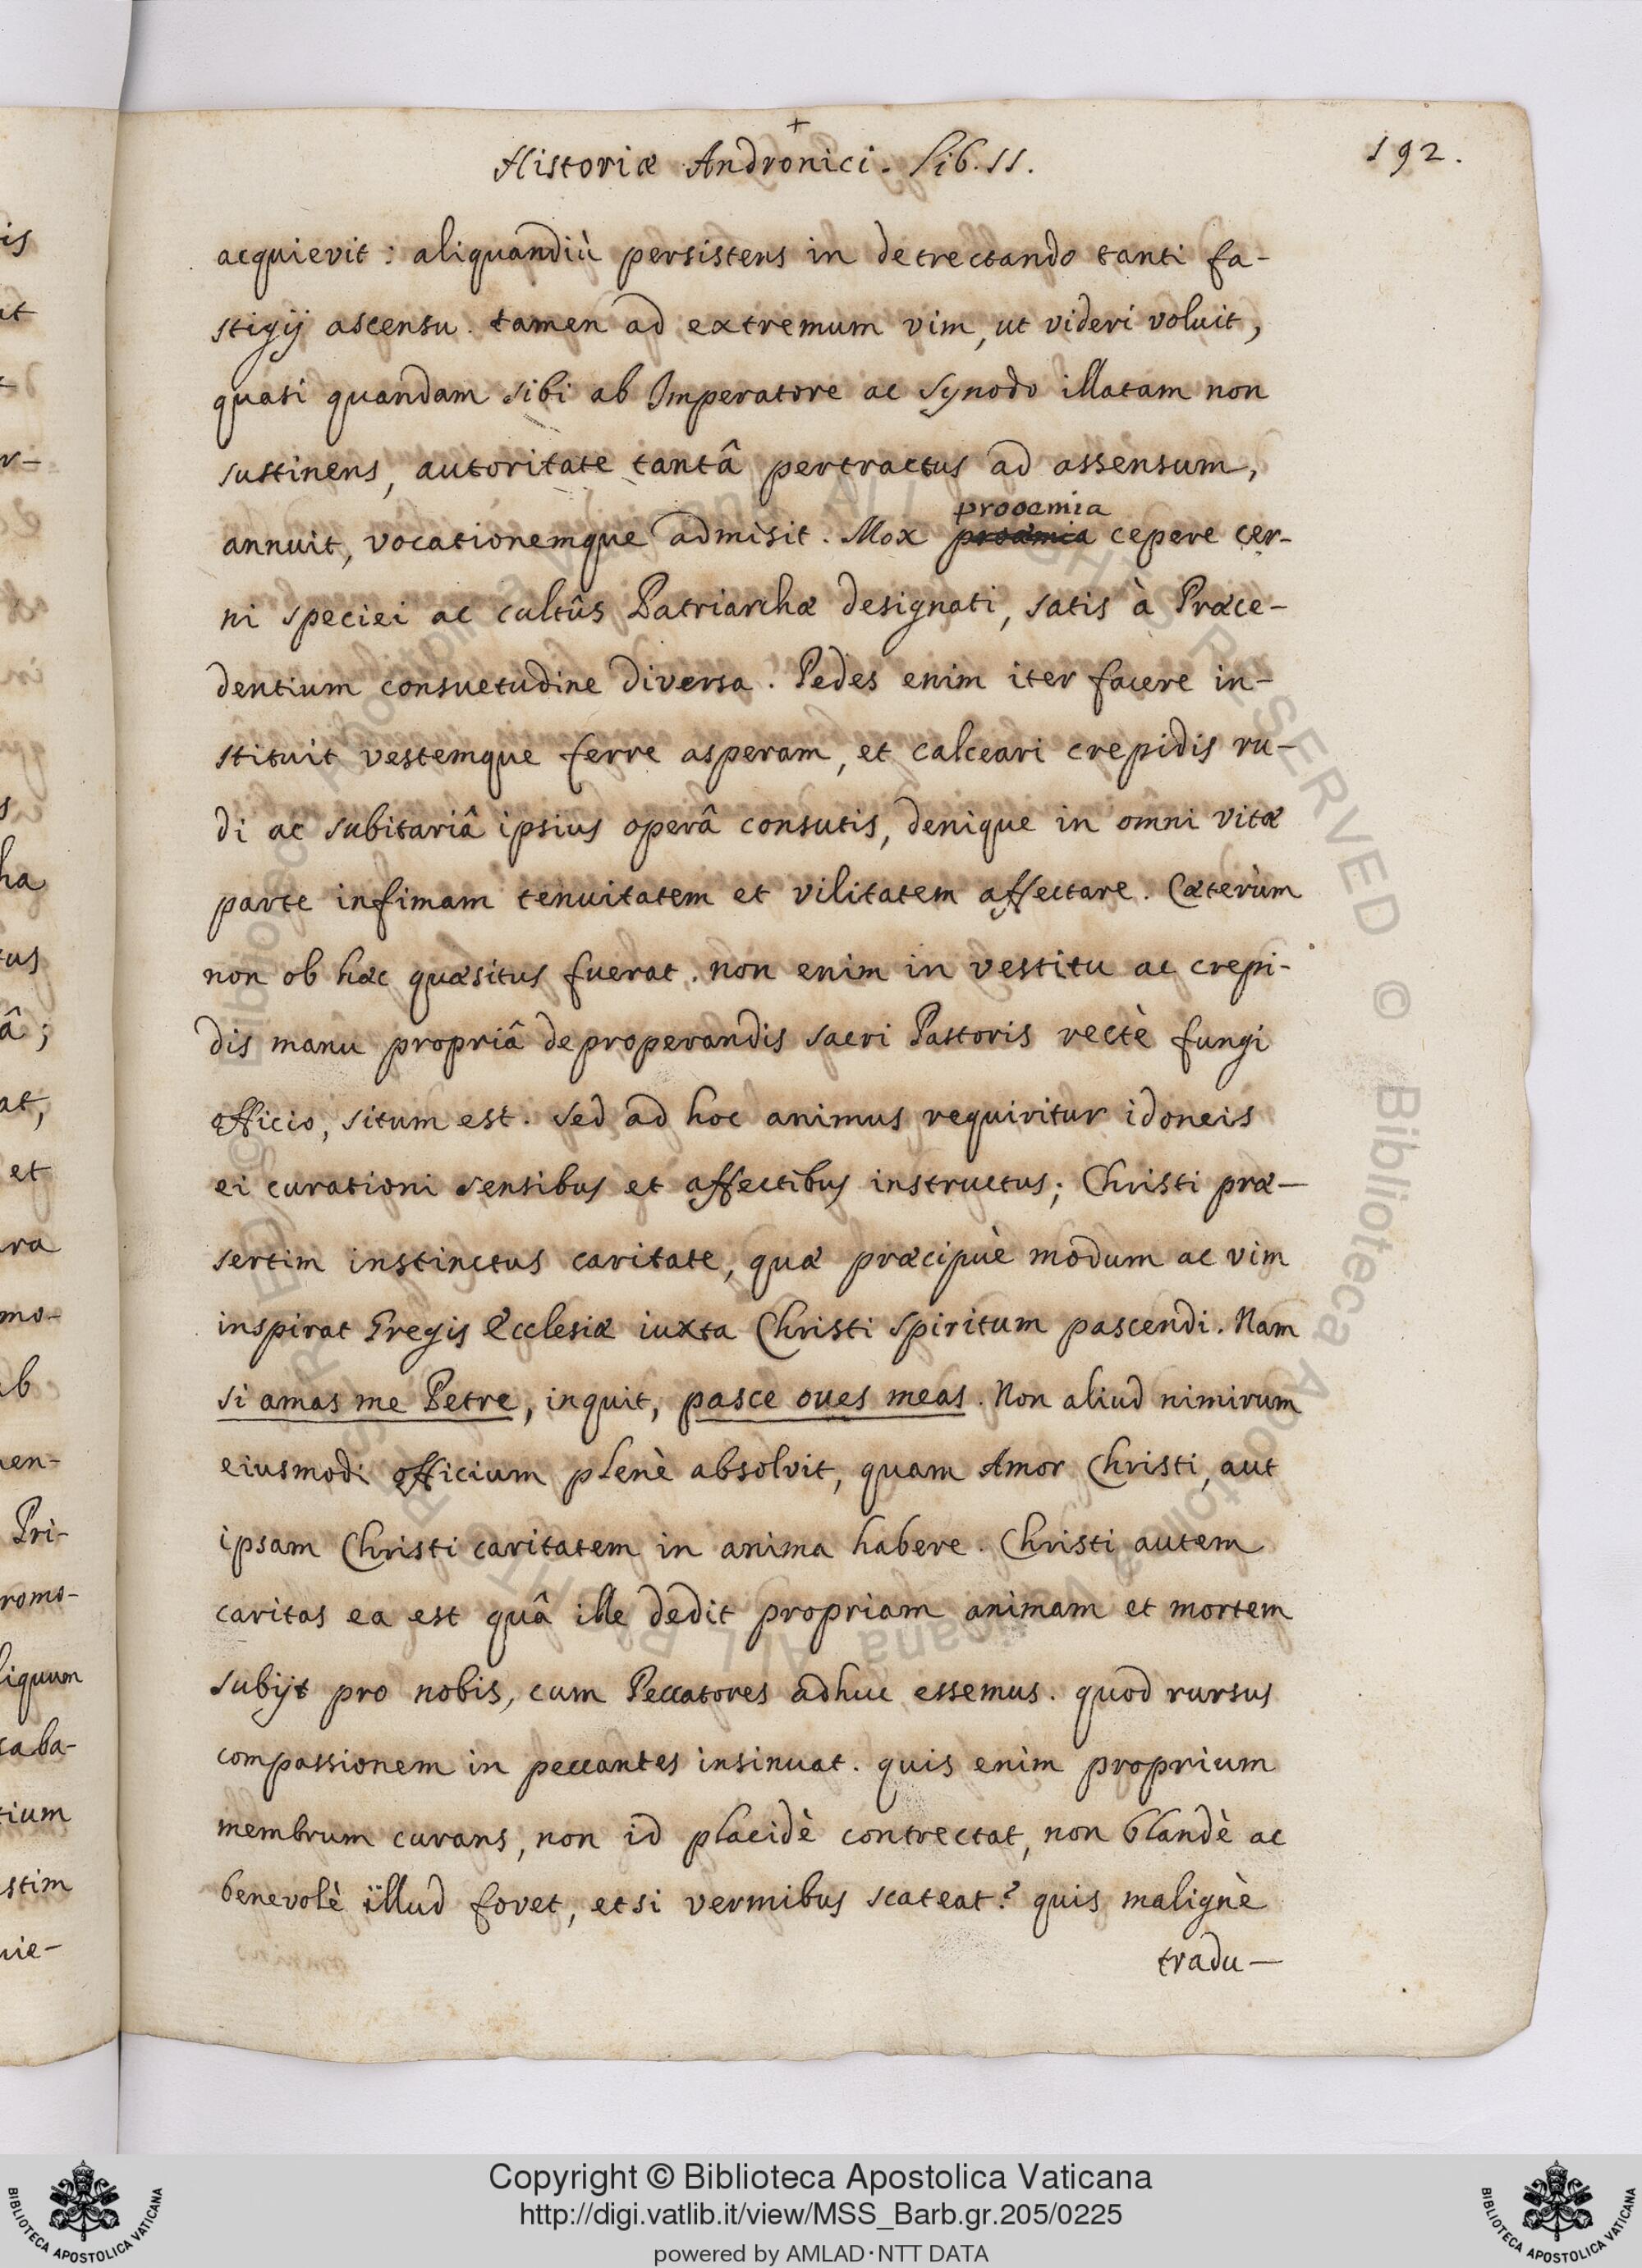 +
Historiæ Andronici. Lib. II.
192.
acquievit: aliquandiù persistens in detrectando tanti fa-
stigij ascensu. tamen ad extremum vim, ut videri voluit,
quasi quandam sibi ab Imperatore ac Synodo illatam non
sustinens, autoritate tantâ pertractus ad assensum,
prooemia
annuit, vocationemque admisit. Mox prooemia cepere cer-
ni speciei ac cultûs Patriarchæ designati, satis à Præce-
dentium consuetudine diversa. Pedes enim iter facere in-
stituit vestemque ferre asperam, et calceari crepidis ru-
di ac subitariâ ipsius operâ consutis, denique in omni vitæ
parte infimam tenuitatem et vilitatem affectare. Cæterùm
non ob hæc quæsitus fuerat. non enim in vestitu ac crepi-
dis manu propriâ deproperandis sacri Pastoris rectè fungi
officio, situm est. sed ad hoc animus requiritur idoneis
ei curationi sensibus et affectibus instructus; Christi præ-
sertim instinctus caritate, quæ præcipuè modum ac vim
inspirat Gregis Ecclesiæ iuxta Christi Spiritum pascendi. Nam
si amas me Petre, inquit, pasce oues meas. Non aliud nimirum
eiusmodi officium plenè absolvit, quam Amor Christi, aut
ipsam Christi caritatem in anima habere. Christi autem
caritas ea est quâ ille dedit propriam animam et mortem
subijt pro nobis, cum Peccatores adhuc essemus. quod rursus
compassionem in peccantes insinuat. quis enim proprium
membrum curans, non id placidè contrectat, non blandè ac
benevolè illud fovet, etsi vermibus scateat? quis malignè
tradu-
is
at
r-
ha
tus
â;
at,
et
ara
mo-
ab
uen-
Pri-
romo-
liquum
saba-
tium
stim
uie-
Copyright © Biblioteca Apostolica Vaticana
http://digi.vatlib.it/view/MSS_Barb.gr.205/0225
powered by AMLAD·NTT DATA
BIBLIOTECA APOSTOLICA VATICANA
BIBLIOTECA APOSTOLICA VATICANA